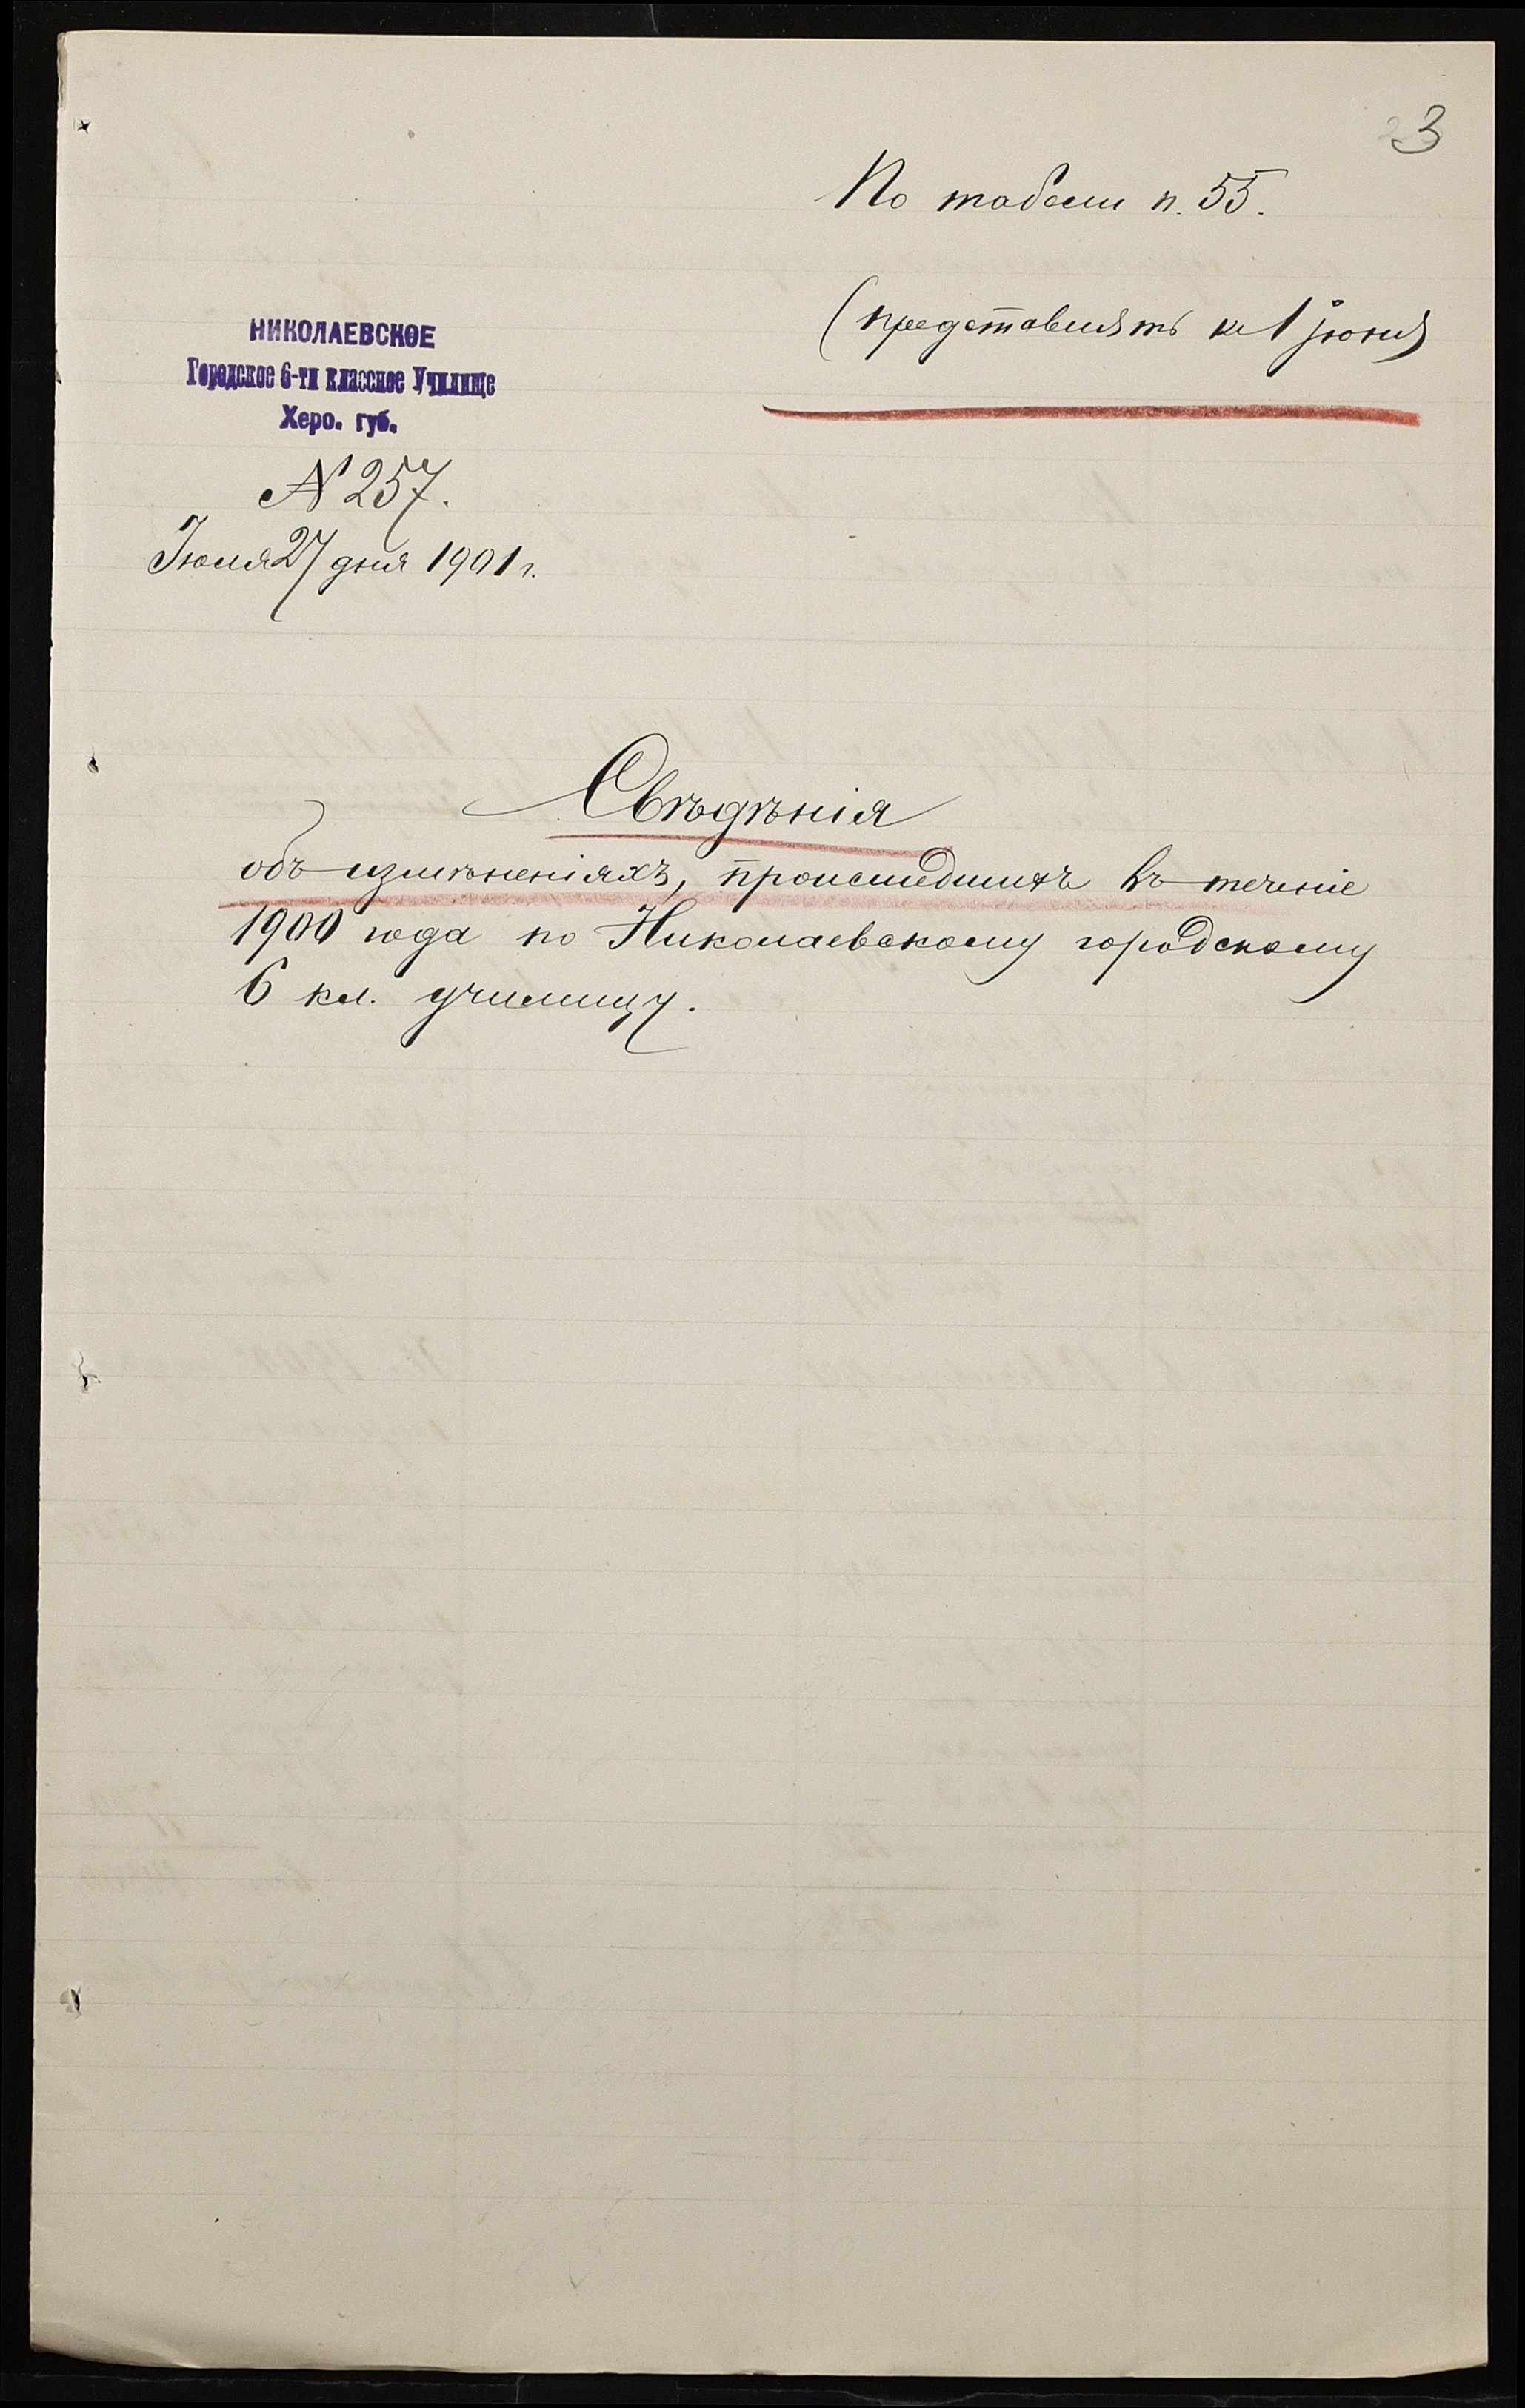 3
По табели п. 55.
(представлять к 1 июня)
НИКОЛАЕВСКОЕ
Городское 6-ти классное Училище
Херо. губ.
№ 257.
Июля 27 дня 1901 г.
Свѣдѣнія
объ измѣненіяхъ, происшедшихъ въ теченіе
1900 года по Николаевскому городскому
6 кл. училищу.